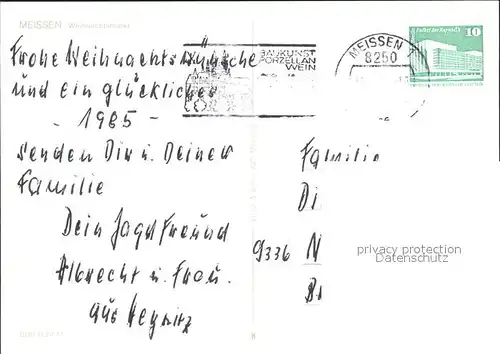 MEISSEN
Frohe Weihnachtswünsche
und ein glückliches
- 1985 -
senden Dir u. Deiner
Familie
Dein Jagdfreund
Albrecht u. Frau.
aus
BAUKUNST
PORZELLAN
WEIN
MEISSEN
8250
Palast der Republik
10
Familie
Di
9336 N
privacy protection
Datenschutz